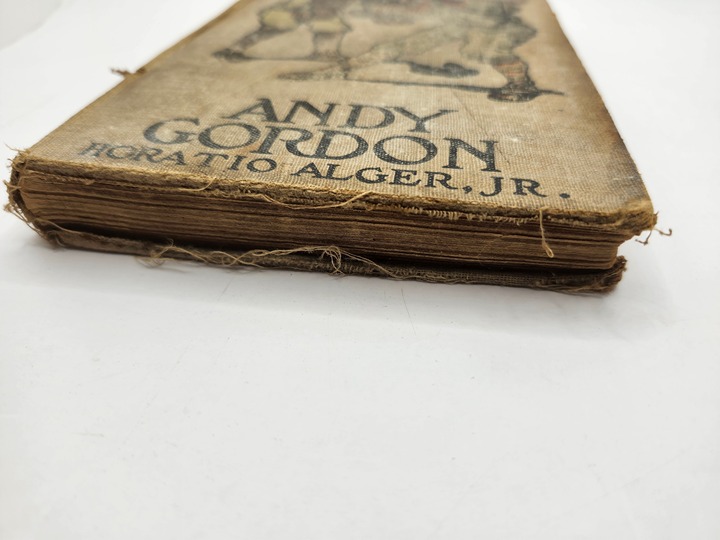 ANDY
GORDON
HORATIO ALGER, JR.